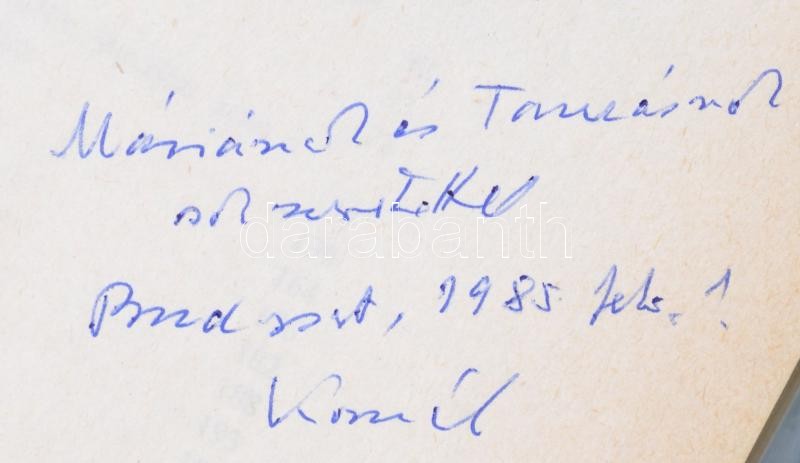 Máriának és Tamásnak
sok szeretettel
darabanth
Budapest, 1985 feb. 1.
Kornél